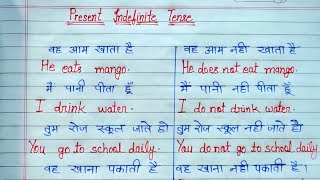 Present Indefinite Tense
वह आम खाता है
वह आम नही खाता है
He eats mango.
He does not eat mango.
मैं पानी पीता हूँ
मैं पानी नही पीता हूँ
I drink water.
I do not drink water.
तुम रोज स्कूल जाते हो
तुम रोज स्कूल नही जाते हो
You go to school daily.
You do not go to school daily.
वह खाना पकाती है
वह खाना नही पकाती है।